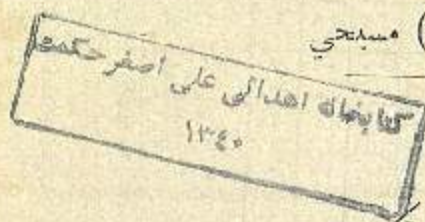 مسبحي
کتابخانه اهدائی علی اصغر حکمت
۱۳۴۰